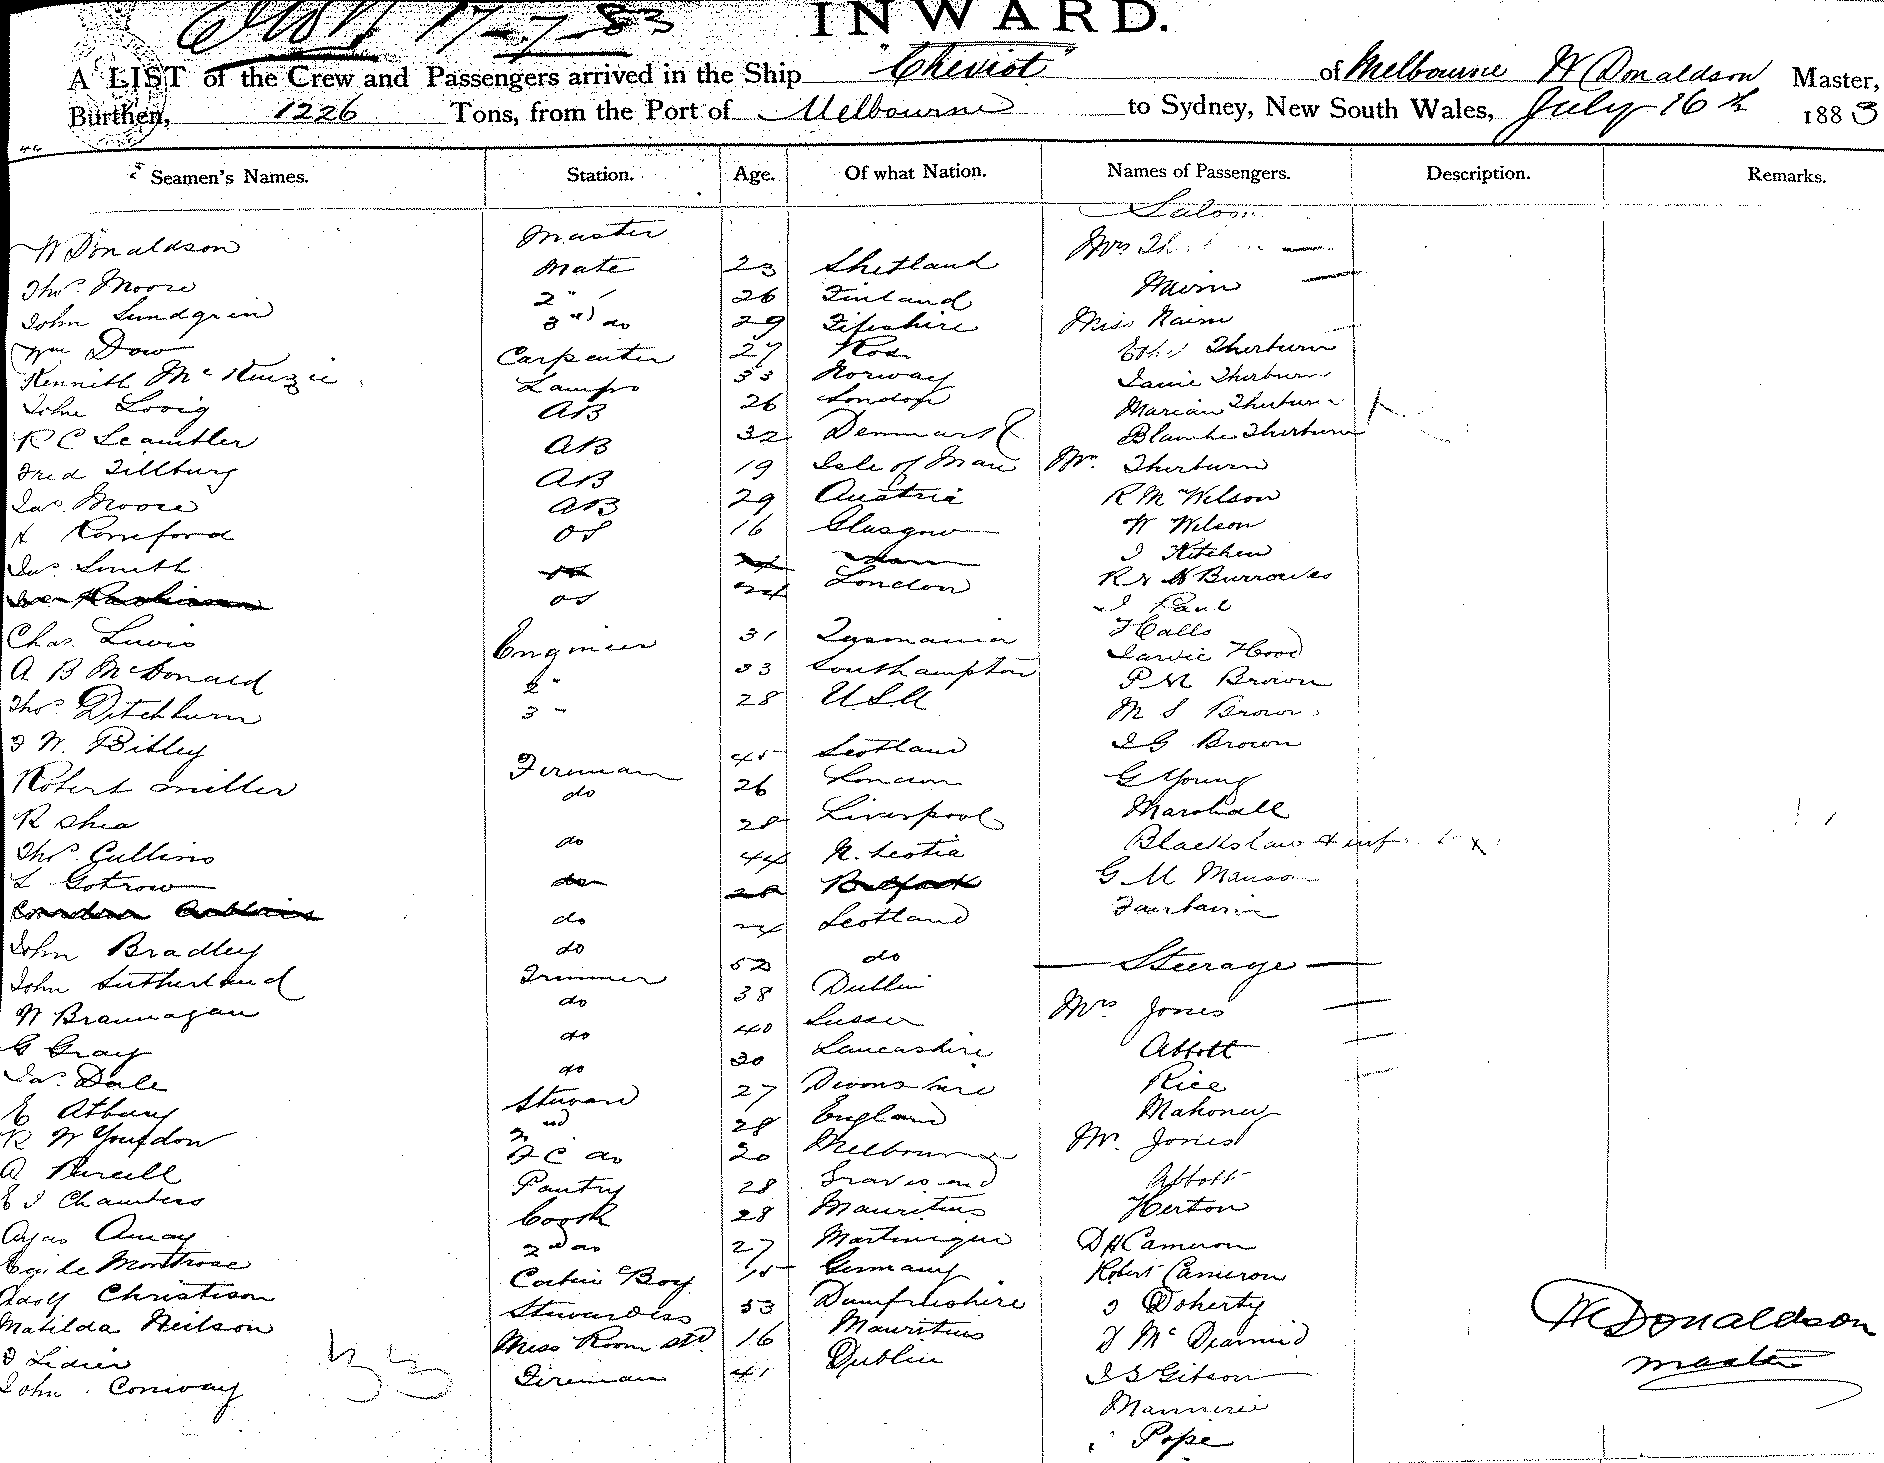 17-7-83 INWARD.
A LIST of the Crew and Passengers arrived in the Ship "Cheviot" of Melbourne W Donaldson Master,
Burthen, 1226 Tons, from the Port of Melbourne to Sydney, New South Wales, July 16th 1883
Seamen's Names. Station. Age. Of what Nation. Names of Passengers. Description. Remarks.
Saloon
W Donaldson Master Mrs
Thos. Moore Mate 23 Shetland Nairn
John Lundgrin 2" 26 Finland Miss Nairn
Wm Dow 3rd do 29 Fifeshire Therburn
Kenneth McKenzie Carpenter 27 Ross Janie Therburn
John Lovig Lamps 33 Norway Marian Therburn
R C Scambler AB 26 London Blanche Therburn
Fred Tillburg AB 32 Denmark Mr. Therburn
Jas. Moore AB 19 Isle of Man R M Wilson
A Romeford AB 29 Austria W Wilson
Jas. Smith OS 16 Glasgow J Kitchen
R & N Burrowes
Chas. Lewis OS London J Paul
Halls
A B McDonald Engineer 31 Tysmania Jarvie Hood
Thos. Ditchburn 2" 33 Southampton P M Brown
J W. Bitley 3" 28 USA M S Brown
J G Brown
Robert Miller Fireman 45 Scotland G Young
R Shea do 26 London Marshall
Thos. Cullins do 28 Liverpool Blackslaw & inf.
L Gotrow do 44 N. Scotia G M Manson
Belfast Fairbairn
John Bradley do Scotland
John Sutherland do 52 do Steerage
W Brannagan Trimmer 38 Dublin Mrs Jones
G Gray do 40 Sussex Abbott
Jas. Dale do 30 Lancashire Rice
E Atbury do 27 Devonshire Mahoney
R W Yourdon Steward 28 England Mr. Jones
A Purcell 2nd 20 Melbourne Abbott
E J Chambers F C do 28 Gravesend Herton
Amay Pantry 28 Mauritius D H Cameron
Montrose Cook 27 Martinique Robert Cameron
Adolf Christison 2nd do 15 Germany J Doherty
Matilda Neilson Cabin Boy Stewardess 53 Dumfrieshire D McDearmid
J Lidier Mess Room std. 16 Mauritius J S Gibson
John Conway Fireman 41 Dublin Mannerie
Pope
33
W Donaldson
Master